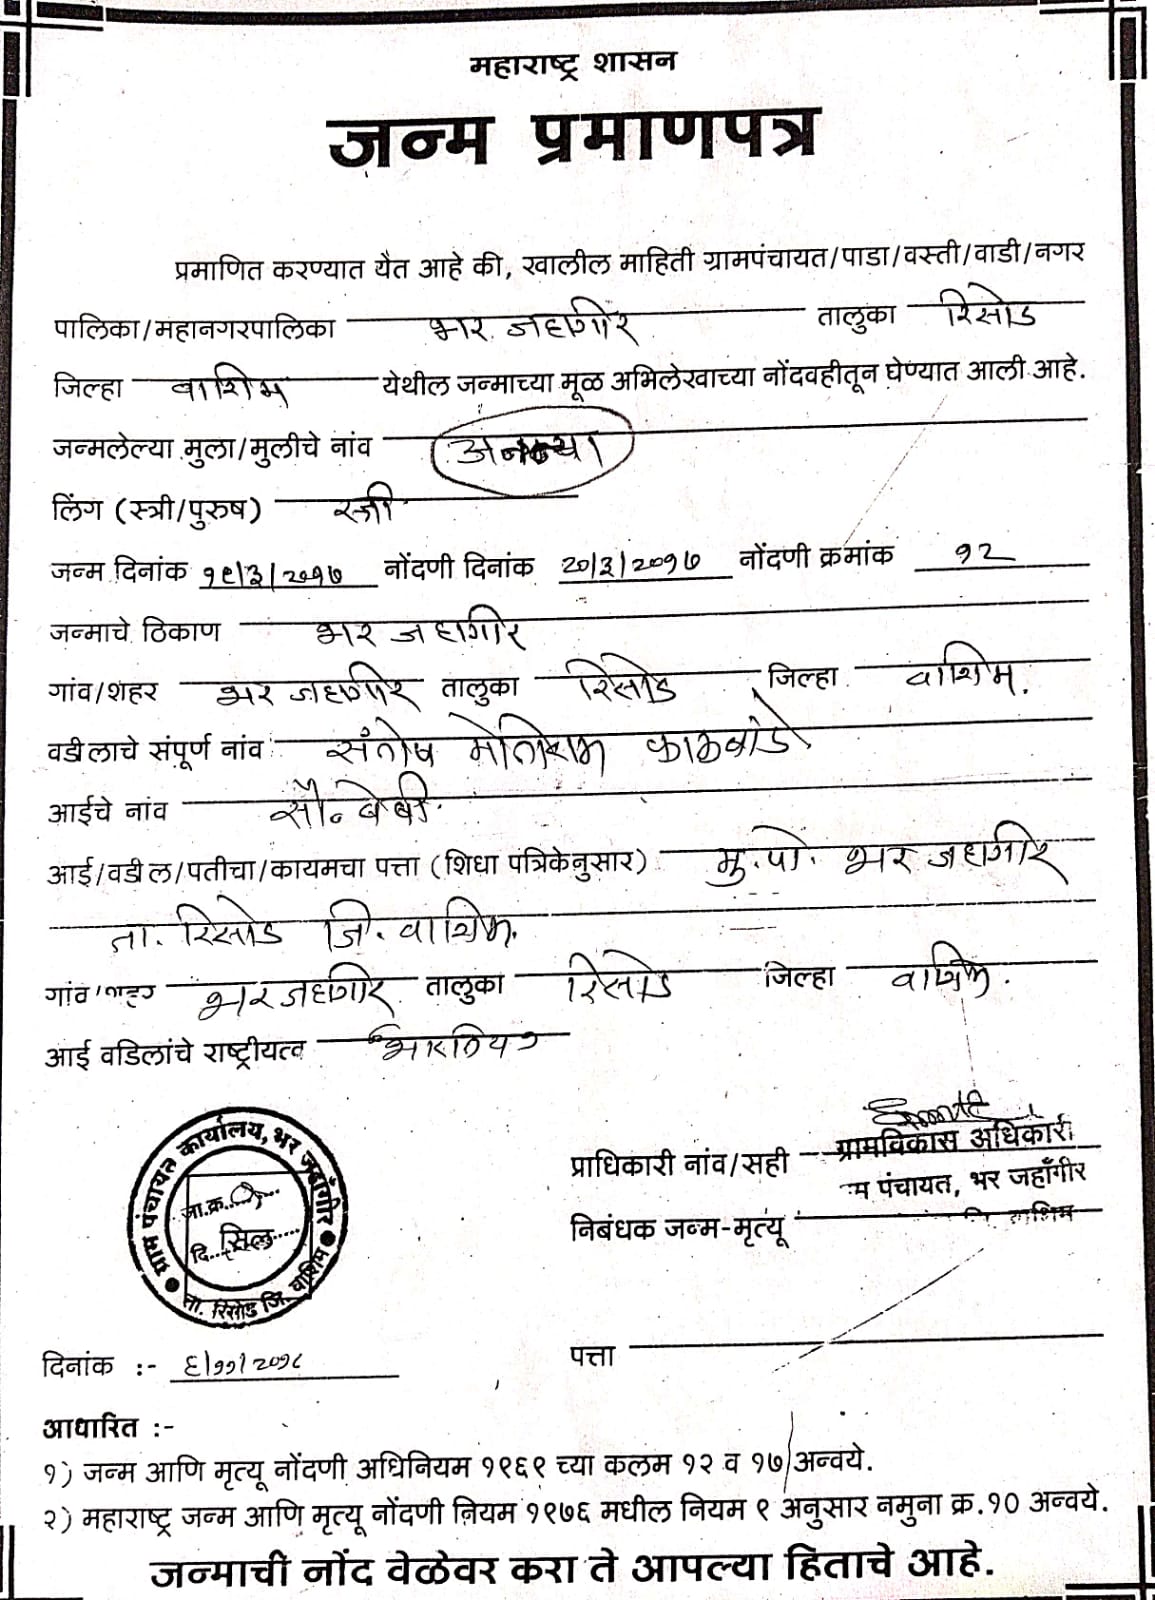 महाराष्ट्र शासन
जन्म प्रमाणपत्र
प्रमाणित करण्यात येत आहे की, खालील माहिती ग्रामपंचायत/पाडा/वस्ती/वाडी/नगर
पालिका/महानगरपालिका भर जहागीर तालुका रिसोड
जिल्हा वाशिम येथील जन्माच्या मूळ अभिलेखाच्या नोंदवहीतून घेण्यात आली आहे.
जन्मलेल्या मुला/मुलीचे नांव अनन्या
लिंग (स्त्री/पुरुष) स्त्री
जन्म दिनांक १९/३/२०१७ नोंदणी दिनांक २०/३/२०१७ नोंदणी क्रमांक १२
जन्माचे ठिकाण भर जहागीर
गांव/शहर भर जहागीर तालुका रिसोड जिल्हा वाशिम.
वडीलाचे संपूर्ण नांव संतोष मोतीराम काळबांडे
आईचे नांव सौ. बेबी
आई/वडील/पतीचा/कायमचा पत्ता (शिधा पत्रिकेनुसार) मु.पो. भर जहागीर
ता. रिसोड जि. वाशिम.
गांव/शहर भर जहागीर तालुका रिसोड जिल्हा वाशिम.
आई वडिलांचे राष्ट्रीयत्व भारतिय
ग्राम पंचायत कार्यालय, भर जहाँगीर
जा.क्र.
दि. सिल
ता. रिसोड जि. वाशिम
प्राधिकारी नांव/सही ग्रामविकास अधिकारी
पंचायत, भर जहाँगीर
निबंधक जन्म-मृत्यू वाशिम
दिनांक :- ६/११/२०१८ पत्ता
आधारित :-
१) जन्म आणि मृत्यू नोंदणी अधिनियम १९६९ च्या कलम १२ व १७ अन्वये.
२) महाराष्ट्र जन्म आणि मृत्यू नोंदणी नियम १९७६ मधील नियम ९ अनुसार नमुना क्र.१० अन्वये.
जन्माची नोंद वेळेवर करा ते आपल्या हिताचे आहे.